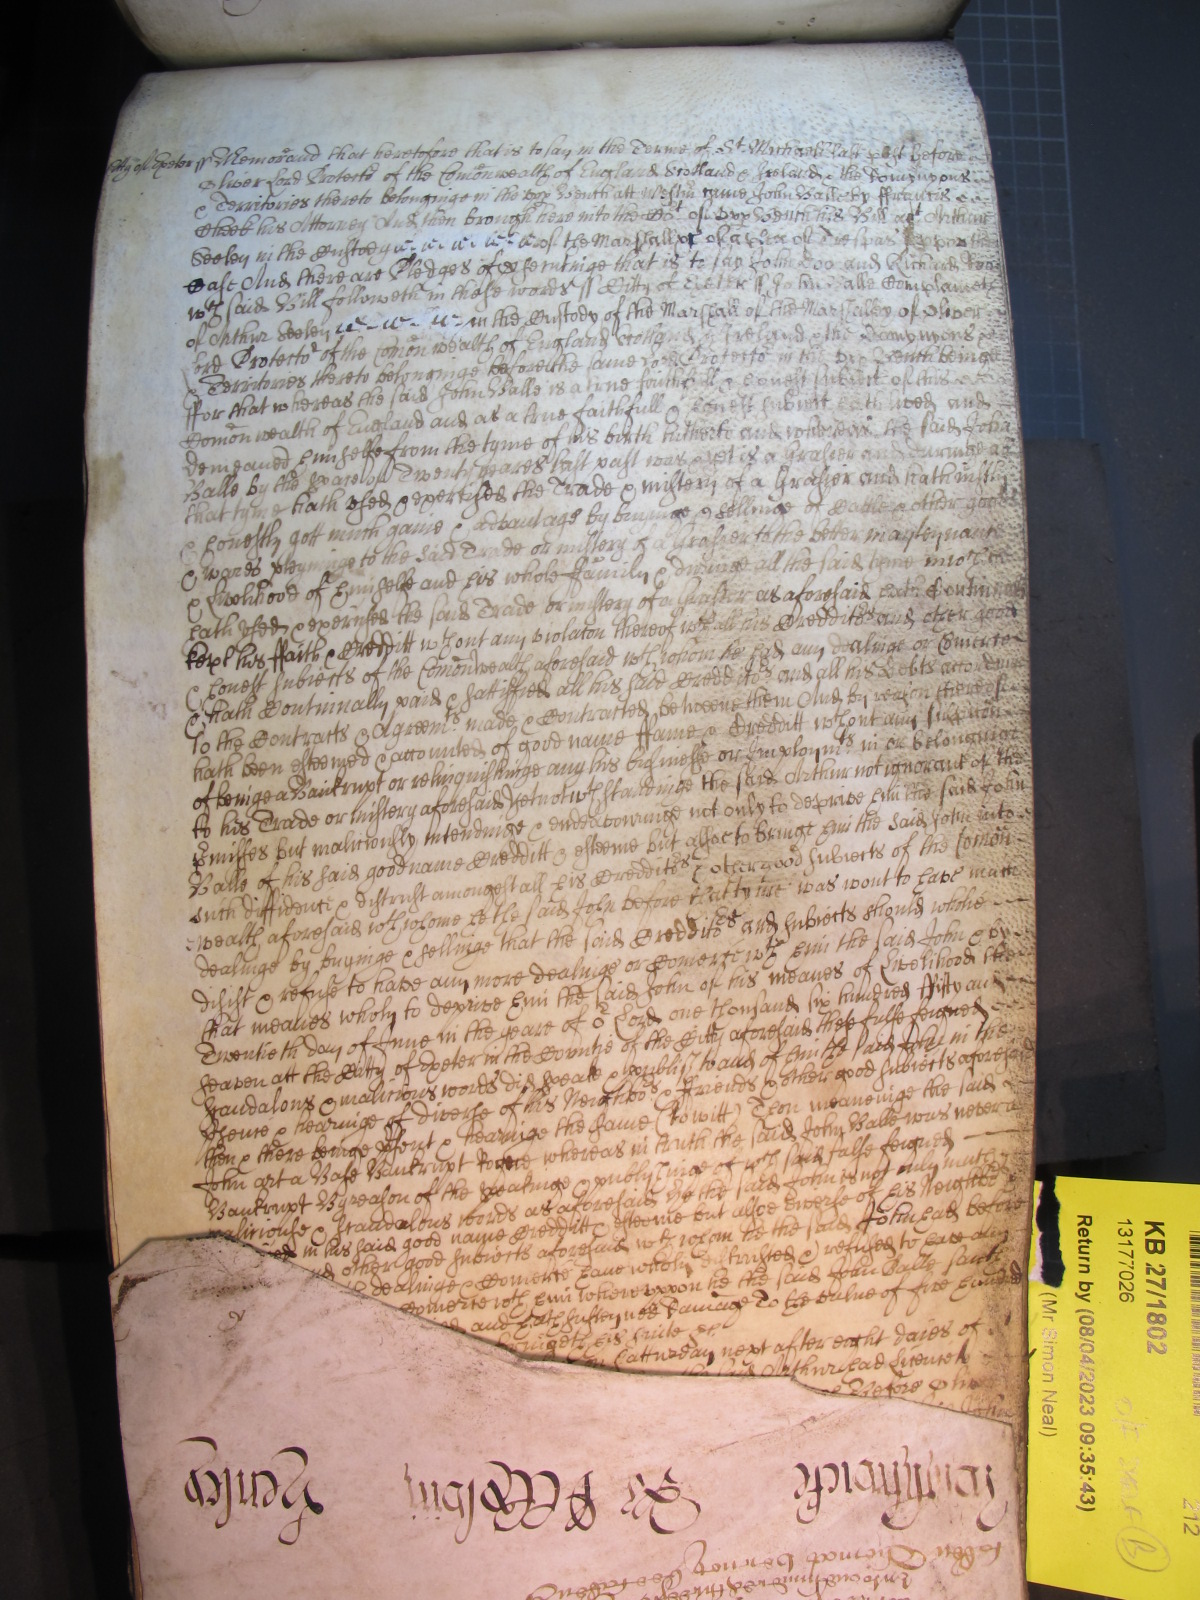 Citty of Exeter ss Memorand that heretofore that is to say in the Terme of St Michael last past before
Oliver Lord Protector of the Comonwealth of England Scotland & Ireland & the Domynyons
& Territories thereto belonginge in the upp Bench att Westm came John Balle by Francis
Cheeke his Attorney And then brought here into the Cort of upp Bench his Bill agt Arthur
Seeley in the Custody of the Marshall &c of a plea of Trespas uppon the
Case And there are Pledges of prosecutinge that is to say John Doo and Richard Roo
wch said Bill followeth in these words ss Citty of Exeter ss John Balle Complaineth
of Arthur Seeley in the Custody of the Marshall of the Marshalsey of Oliver
Lord Protector of the Comon wealth of England Scotland & Ireland & the Domynyons
& Territories thereto belonginge before the same Lord Protector in the upp Bench beinge
ffor that whereas the said John Balle is a true faithfull & honest subiect of this
Comon wealth of England and as a true faithfull & honest subiect hath lived and
demeaned himselfe from the tyme of his birth hitherto and whereas the said John
Balle by the space of Twenty yeares last past was & yet is a Grasier and dureinge all
that tyme hath used & exercised the Trade & mistery of a Grasier and hath iustly
& honestly gott much gaine & advantage by buyinge & sellinge of Cattle & other goods
& wares belonginge to the said Trade or mistery of a Grasier to the better maynteynance
& livelihood of himselfe and his whole ffamily & duringe all the said tyme in wch he
hath used & exercised the said Trade or mistery of a Grasier as aforesaid hath Continually
kept his ffaith & Creditt wthout any violacon thereof wth all his Creditors and other good
& honest subiects of the Comonwealth aforesaid wth whom he had any dealinge or Comerce
& hath Continually paid & satisfied all his said Creditors and all his debts accordinge
to the Contracts & Agreemts made & Contracted betweene them And by reason thereof
hath been esteemed & accounted of good name ffame & Creditt wthout any suspition
of beinge a Bankrupt or relinquishinge any his businesse or Imploymts in or belonginge
to his Trade or mistery aforesaid Yet notwthstandinge the said Arthur not ignorant of the
pmisses but maliciously intendinge & endeavouringe not only to deprive him the said John
Balle of his said good name Creditt & esteeme but alsoe to bringe him the said John into
such diffidence & distrust amongest all his Creditors & other good subiects of the Comon
wealth aforesaid wth whome he the said John before that tyme was wont to have much
dealinge by buyinge & sellinge that the said Creditors and subiects should wholie
desist & refuse to have any more dealinge or Comerce wth him the said John & by
that meanes wholy to deprive him the said John of his meanes of Livelihood the
Twentieth day of June in the yeare of or Lord one thousand six hundred ffifty and
seaven att the Citty of Exeter in the Countie of the Citty aforesaid these false feigned
scandalous & malicious words did speake & publish to and of him the said John in the
psence & hearinge of diverse of his Neighbors & ffriends & other good subiects aforesaid
then & there beinge psent & hearinge the same (to witt) Thou meaneinge the said
John art a Base Bankrupt Rogue whereas in truth the said John Balle was never a
Bankrupt By reason of the speakinge & publishinge of wch said false feigned
maliciouse & scandalous words as aforesaid he the said John is not only much
in his said good name Creditt & esteeme but alsoe diverse of his Neighbors
and other good subiects aforesaid wth whom he the said John had before
dealinge & Comerce have wholy distrusted & refused to have any
Comerce wth him whereuppon he the said John Balle saith
and hath susteyned Damage To the value of five hundred
bringeth his suite &c
Satturday next after eight daies of
the said Arthur had licence to
Before Oliver
John
KB 27/1802
13177026
Return by (08/04/2023 09:35:43)
(Mr Simon Neal)
212